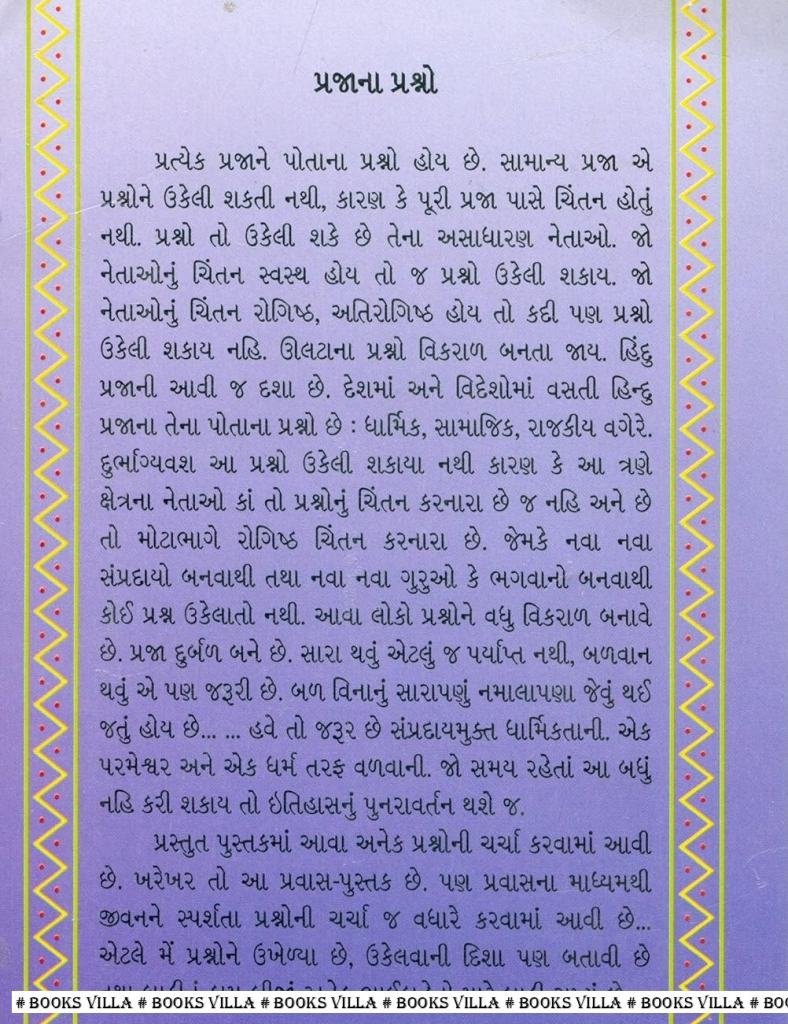 પ્રજાના પ્રશ્નો
પ્રત્યેક પ્રજાને પોતાના પ્રશ્નો હોય છે. સામાન્ય પ્રજા એ
પ્રશ્નોને ઉકેલી શકતી નથી, કારણ કે પૂરી પ્રજા પાસે ચિંતન હોતું
નથી. પ્રશ્નો તો ઉકેલી શકે છે તેના અસાધારણ નેતાઓ. જો
નેતાઓનું ચિંતન સ્વસ્થ હોય તો જ પ્રશ્નો ઉકેલી શકાય. જો
નેતાઓનું ચિંતન રોગિષ્ઠ, અતિરોગિષ્ઠ હોય તો કદી પણ પ્રશ્નો
ઉકેલી શકાય નહિ. ઊલટાના પ્રશ્નો વિકરાળ બનતા જાય. હિંદુ
પ્રજાની આવી જ દશા છે. દેશમાં અને વિદેશોમાં વસતી હિન્દુ
પ્રજાના તેના પોતાના પ્રશ્નો છે : ધાર્મિક, સામાજિક, રાજકીય વગેરે.
દુર્ભાગ્યવશ આ પ્રશ્નો ઉકેલી શકાયા નથી કારણ કે આ ત્રણે
ક્ષેત્રના નેતાઓ કાં તો પ્રશ્નોનું ચિંતન કરનારા છે જ નહિ અને છે
તો મોટાભાગે રોગિષ્ઠ ચિંતન કરનારા છે. જેમકે નવા નવા
સંપ્રદાયો બનવાથી તથા નવા નવા ગુરુઓ કે ભગવાનો બનવાથી
કોઈ પ્રશ્ન ઉકેલાતો નથી. આવા લોકો પ્રશ્નોને વધુ વિકરાળ બનાવે
છે. પ્રજા દુર્બળ બને છે. સારા થવું એટલું જ પર્યાપ્ત નથી, બળવાન
થવું એ પણ જરૂરી છે. બળ વિનાનું સારાપણું નમાલાપણા જેવું થઈ
જતું હોય છે... ... હવે તો જરૂર છે સંપ્રદાયમુક્ત ધાર્મિકતાની. એક
પરમેશ્વર અને એક ધર્મ તરફ વળવાની. જો સમય રહેતાં આ બધું
નહિ કરી શકાય તો ઇતિહાસનું પુનરાવર્તન થશે જ.
પ્રસ્તુત પુસ્તકમાં આવા અનેક પ્રશ્નોની ચર્ચા કરવામાં આવી
છે. ખરેખર તો આ પ્રવાસ-પુસ્તક છે. પણ પ્રવાસના માધ્યમથી
જીવનને સ્પર્શતા પ્રશ્નોની ચર્ચા જ વધારે કરવામાં આવી છે...
એટલે મેં પ્રશ્નોને ઉખેળ્યા છે, ઉકેલવાની દિશા પણ બતાવી છે
# BOOKS VILLA # BOOKS VILLA # BOOKS VILLA # BOOKS VILLA # BOOKS VILLA # BOOKS VILLA # BO